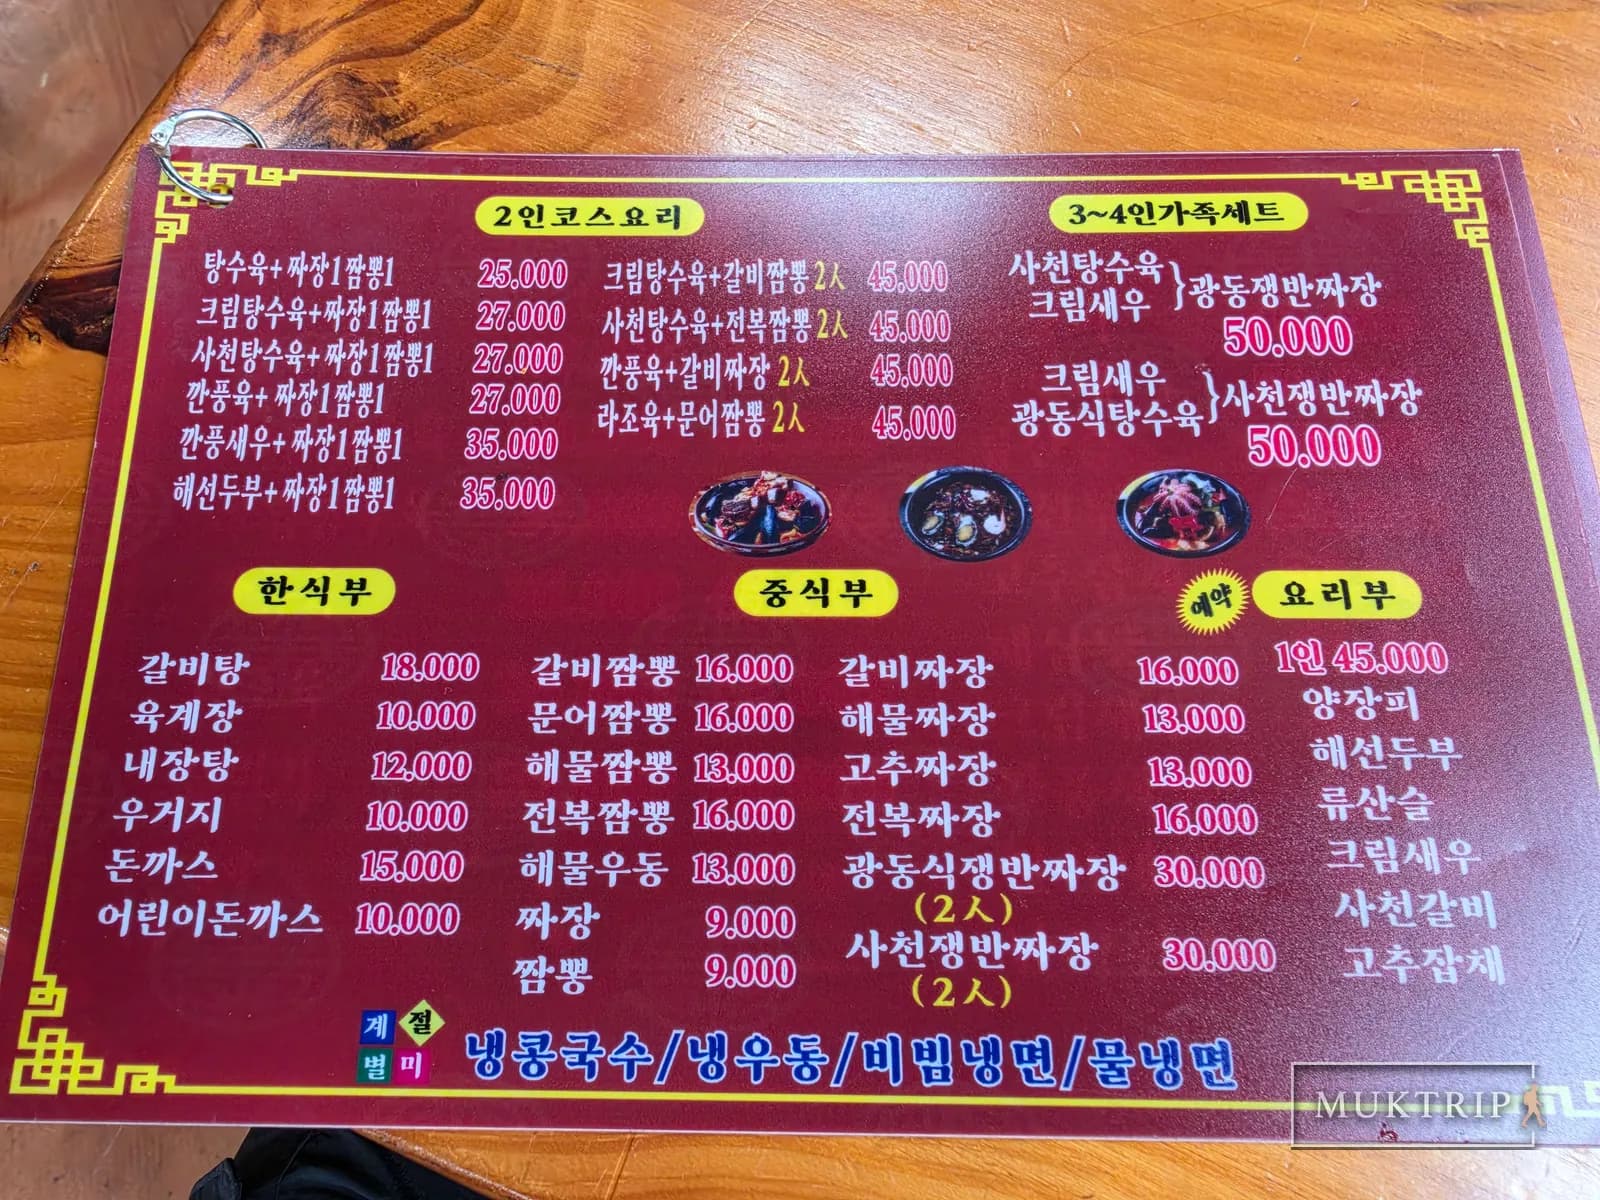 2인코스요리
탕수육+짜장1짬뽕1 25.000
크림탕수육+짜장1짬뽕1 27.000
사천탕수육+짜장1짬뽕1 27.000
깐풍육+짜장1짬뽕1 27.000
깐풍새우+짜장1짬뽕1 35.000
해선두부+짜장1짬뽕1 35.000
크림탕수육+갈비짬뽕 2人 45.000
사천탕수육+전복짬뽕 2人 45.000
깐풍육+갈비짜장 2人 45.000
라조육+문어짬뽕 2人 45.000
3~4인가족세트
사천탕수육
크림새우
}광동쟁반짜장
50.000
크림새우
광동식탕수육
}사천쟁반짜장
50.000
한식부
갈비탕 18.000
육계장 10.000
내장탕 12.000
우거지 10.000
돈까스 15.000
어린이돈까스 10.000
중식부
갈비짬뽕 16.000
문어짬뽕 16.000
해물짬뽕 13.000
전복짬뽕 16.000
해물우동 13.000
짜장 9.000
짬뽕 9.000
갈비짜장 16.000
해물짜장 13.000
고추짜장 13.000
전복짜장 16.000
광동식쟁반짜장 30.000
(2人)
사천쟁반짜장 30.000
(2人)
예약 요리부
1인 45.000
양장피
해선두부
류산슬
크림새우
사천갈비
고추잡채
계절
별미
냉콩국수/냉우동/비빔냉면/물냉면
MUKTRIP